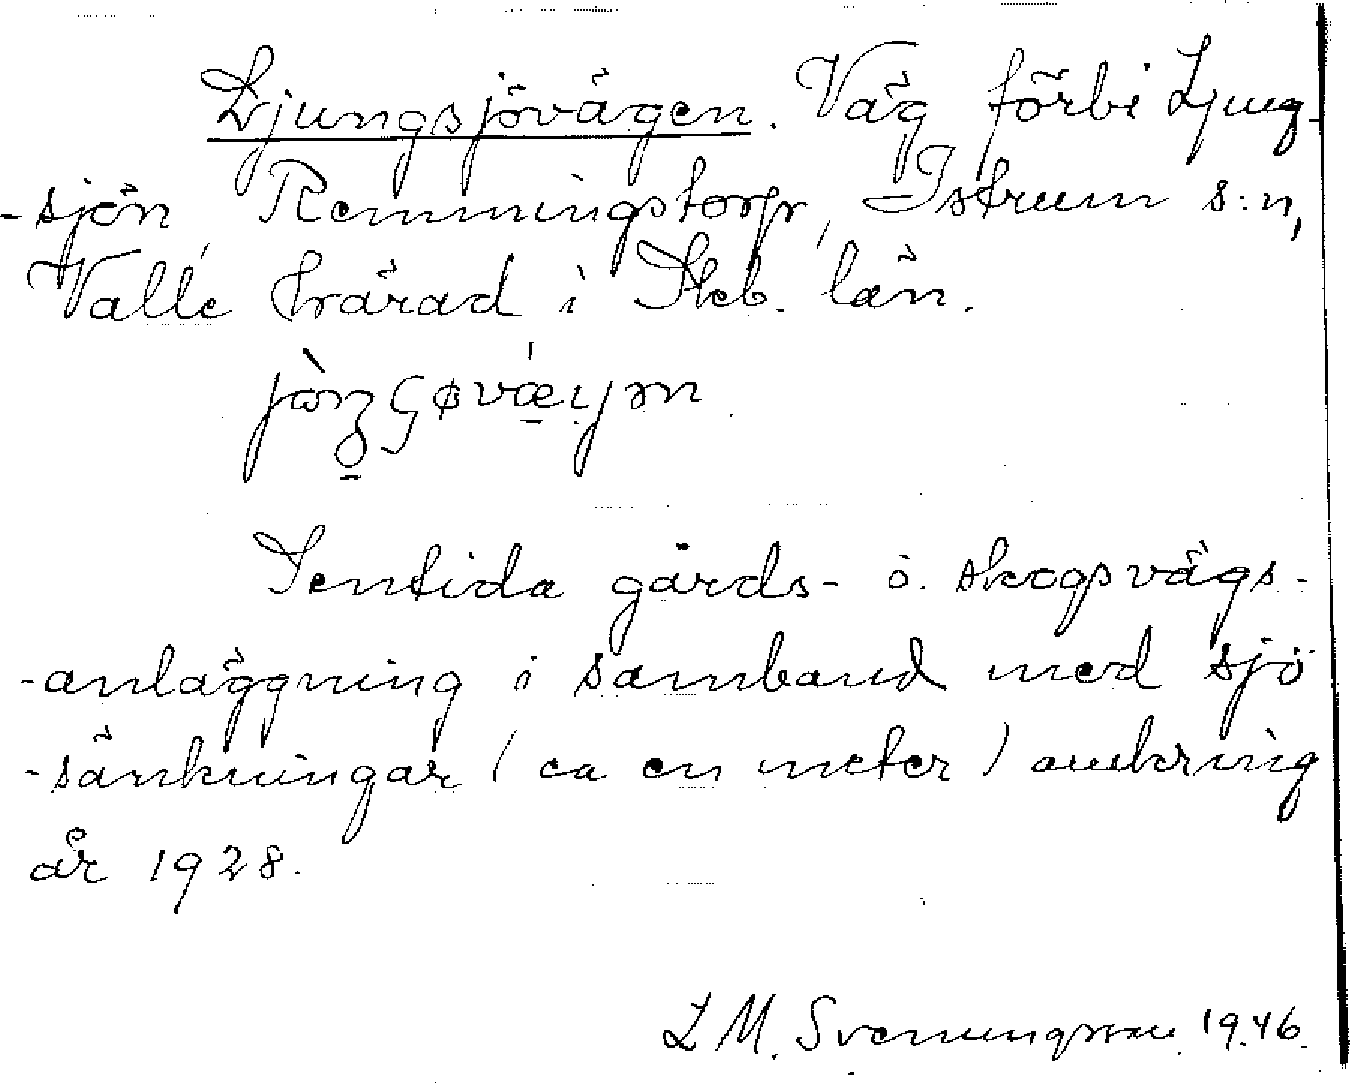 Ljungsjövägen. Väg förbi Ljung-
-sjön, Remmingstorp, Istrum s:n,
Valle härad i Skb. län.
Sentida gårds- o. skogsvägs-
-anläggning i samband med sjö
-sänkningar (ca en meter) omkring
år 1928.
L M. Svenungsson 1946.